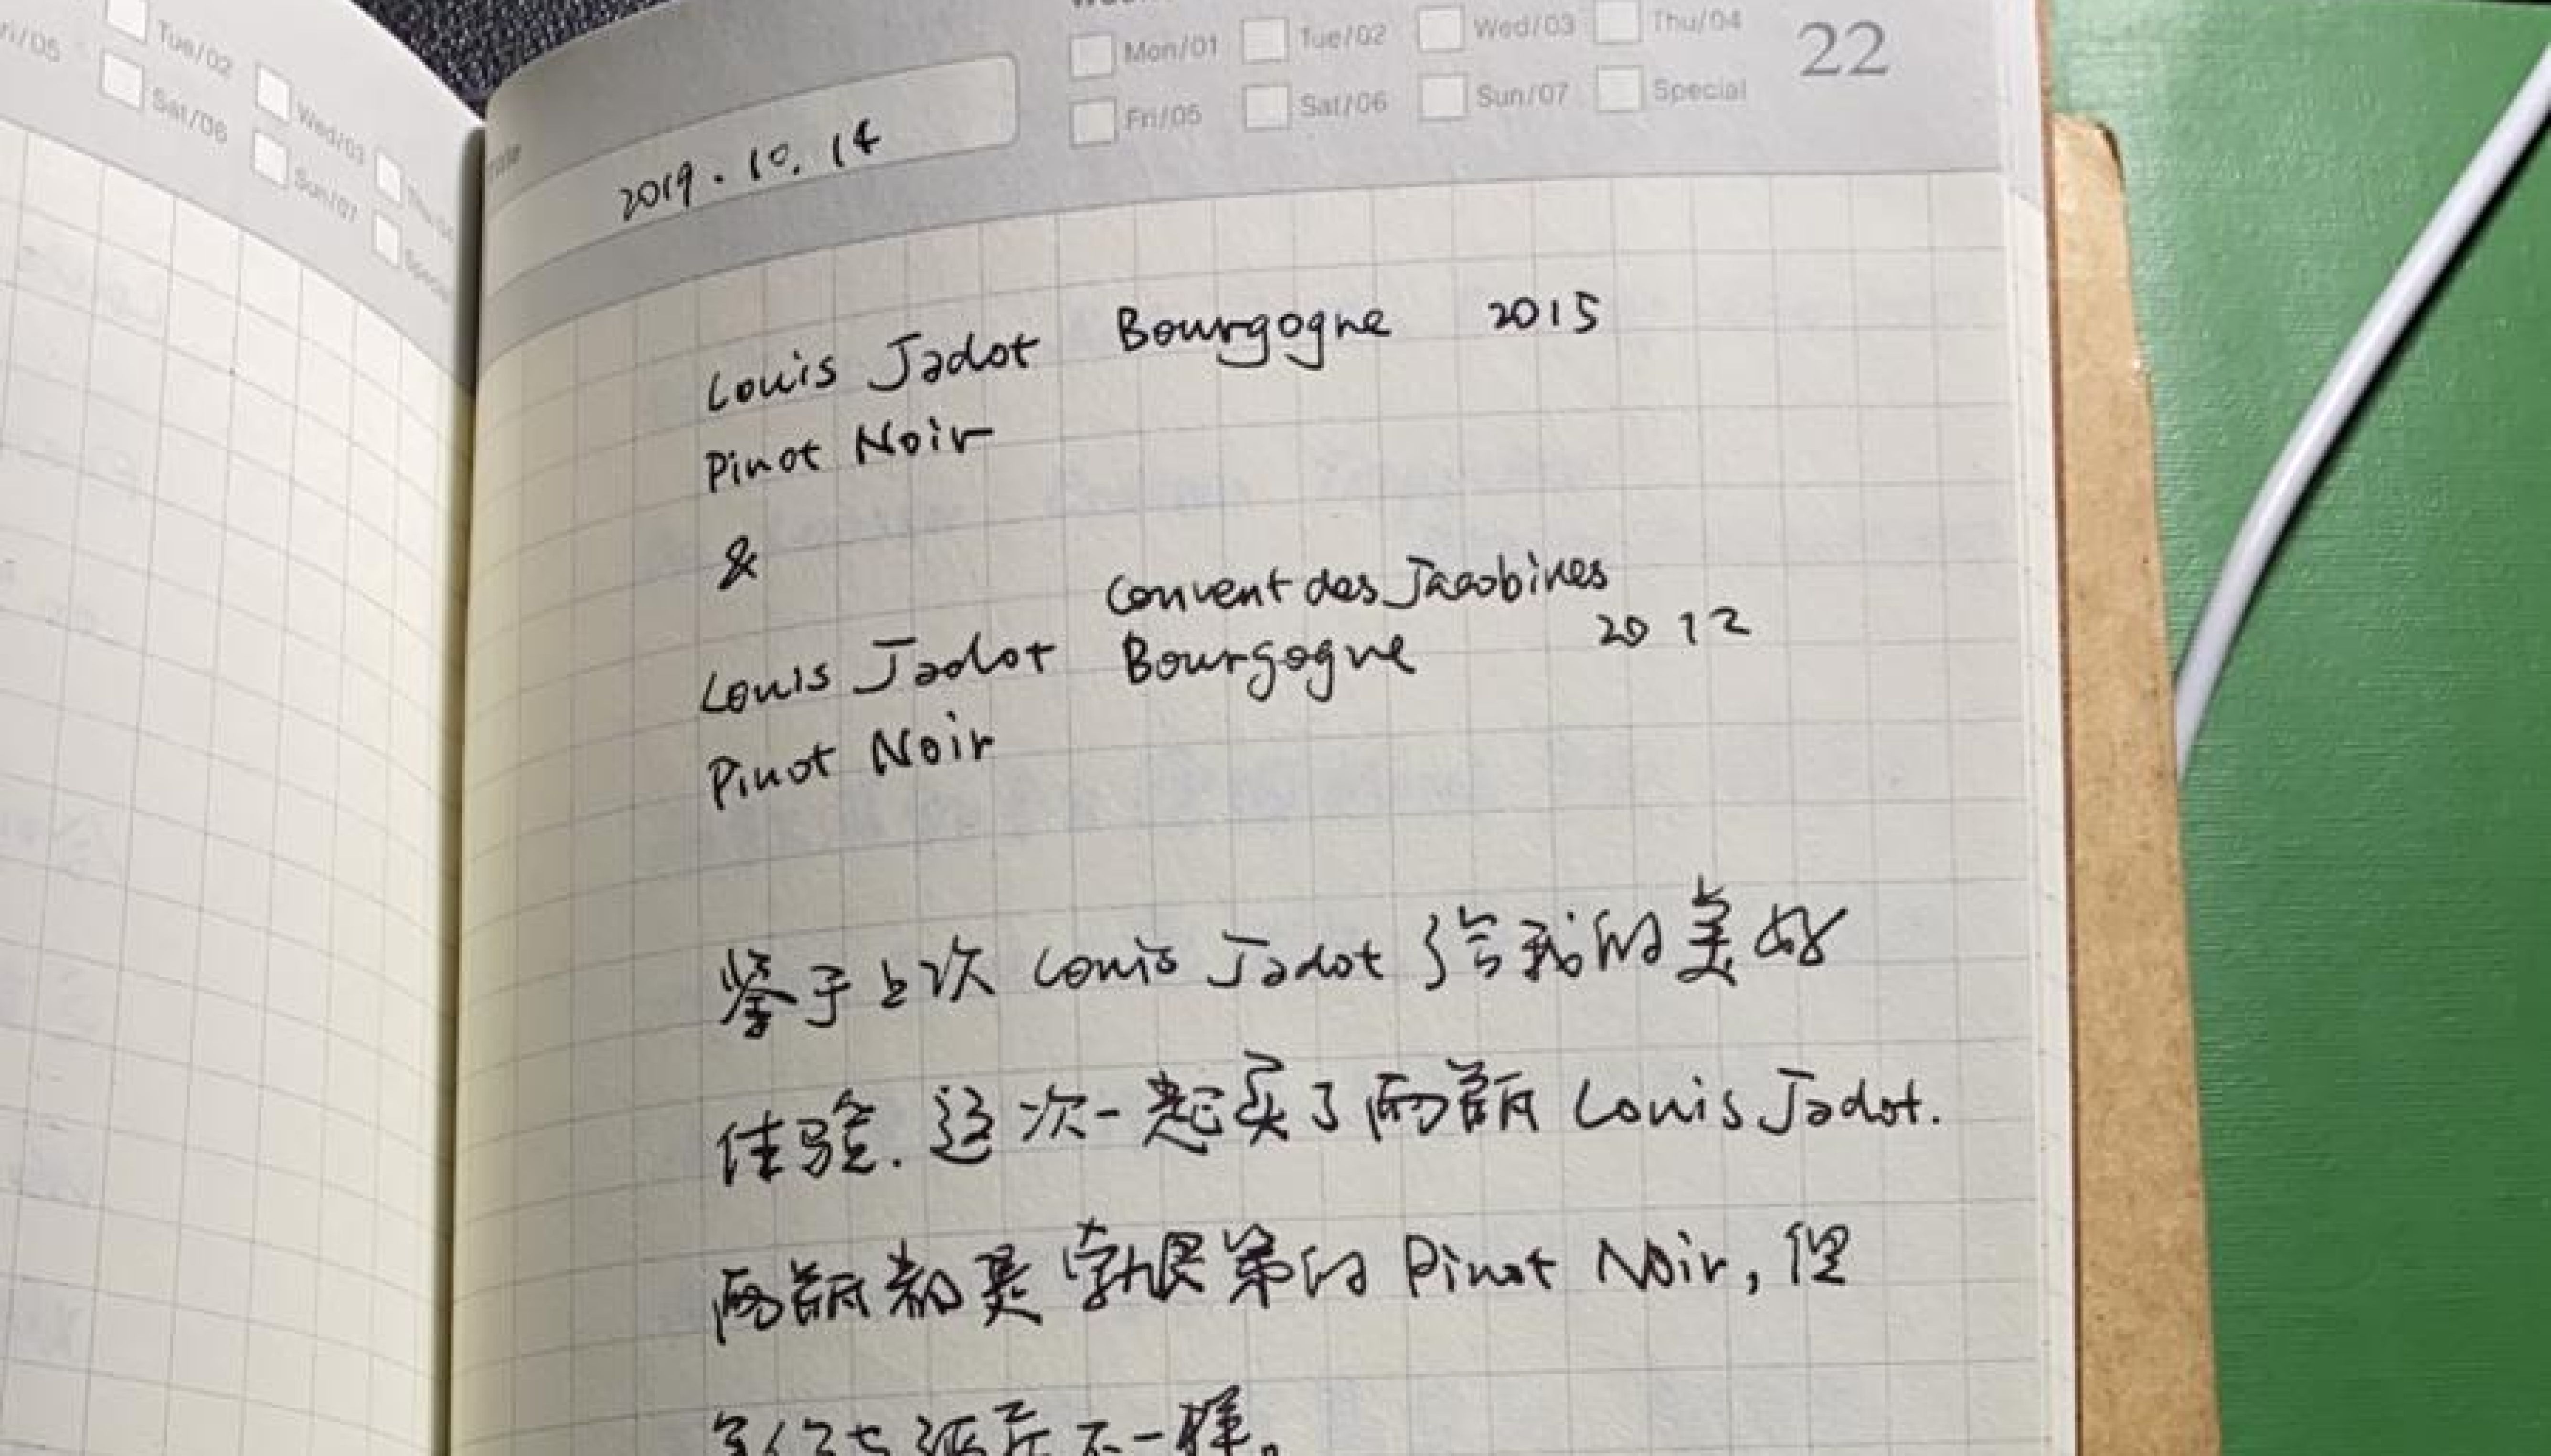 Fri/05 Tue/02 Wed/03
Sat/06 Sun/07
Mon/01 Tue/02 Wed/03 Thu/04 22
Fri/05 Sat/06 Sun/07 Special
2019.10.14
Louis Jadot Bourgogne 2015
Pinot Noir
&
Convent des Jacobines
Louis Jadot Bourgogne 2012
Pinot Noir
鉴于上次 Louis Jadot 给我的美好
体验.这次一起买了两瓶 Louis Jadot.
两瓶都是勃艮第的 Pinot Noir,但
不一样。